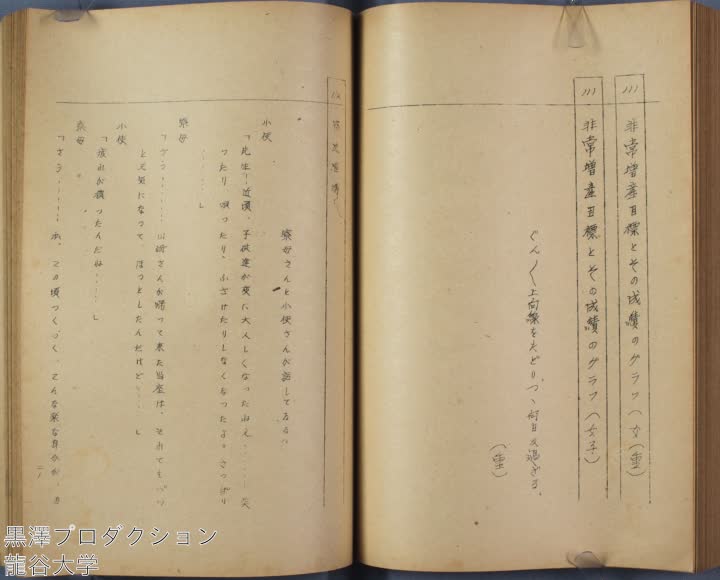 111
非常増産目標とその成績のグラフ（女）（重）
111
非常増産目標とその成績のグラフ（女子）
ぐん〱上向線をたどりつゝ何日か過ぎる、
（重）
寮母さんと小使さんが話してゐる
小使
「先生！近頃、子供達が変に大人しくなったねえ……笑
ったり 唄ったり、ふざけたりしなくなったよ。さっぱり
……」
寮母
「さう……山崎さんが帰って来た当座は、それでもパッ
と元気になって、ほっとしたんだけど……」
小使
「疲れが溜ったんだね……」
寮母
「さう……私、この頃つくづく、こんな楽な身分が、
黒澤プロダクション
龍谷大学